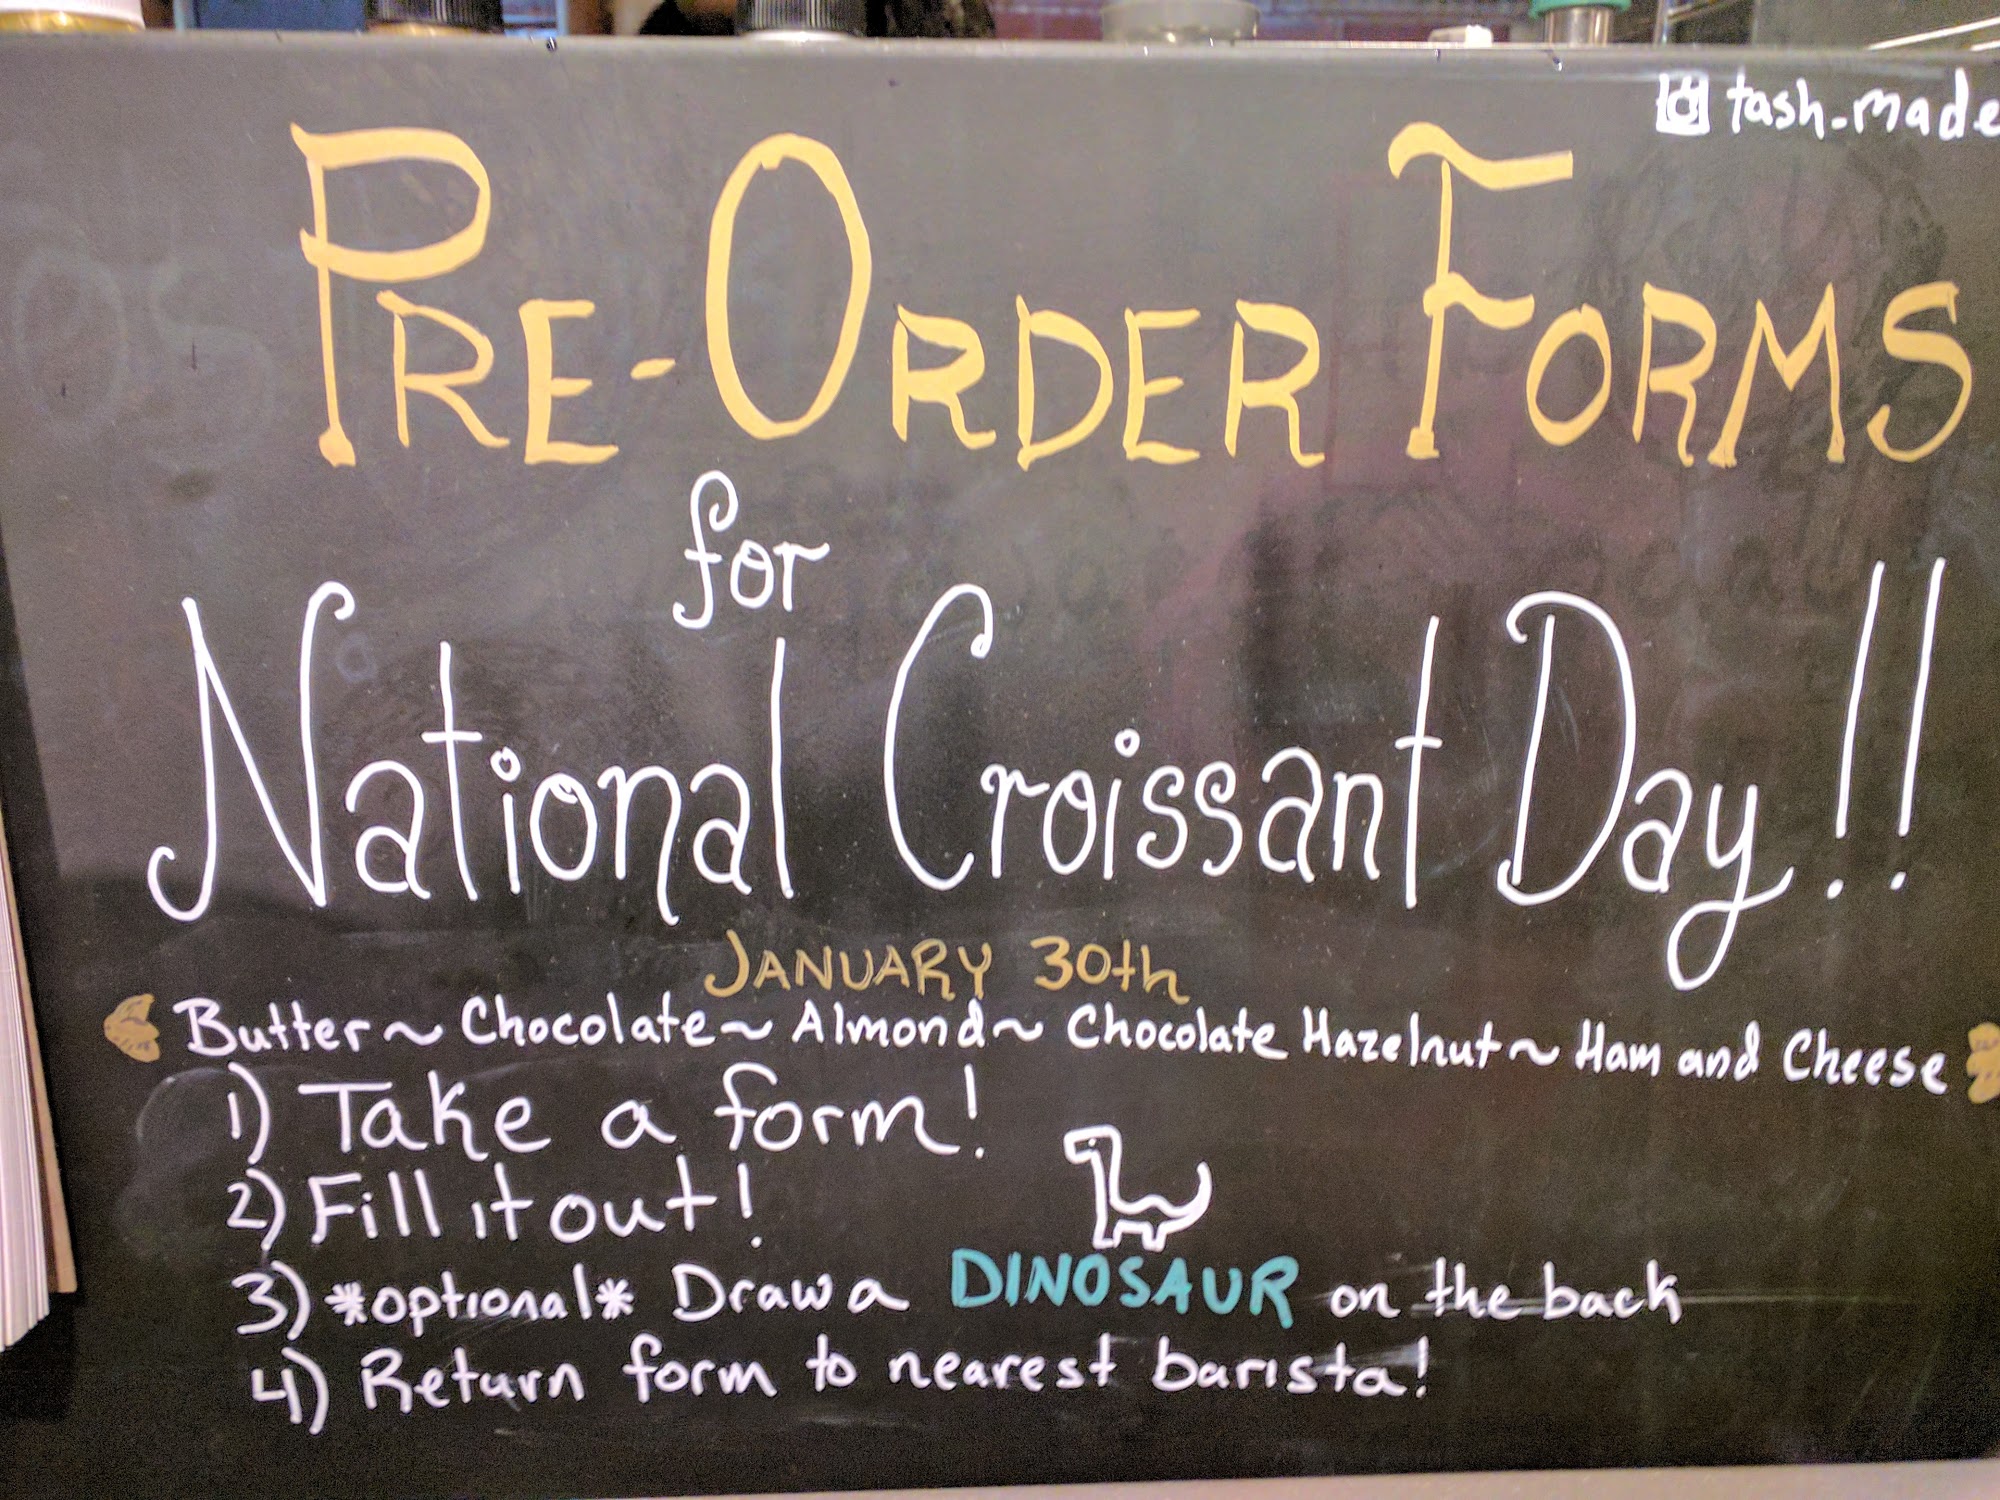 tash_made
PRE-ORDER FORMS
for
National Croissant Day!!
JANUARY 30th
Butter ~ Chocolate ~ Almond ~ Chocolate Hazelnut ~ Ham and Cheese
1) Take a form!
2) Fill it out!
3) *optional* Draw a DINOSAUR on the back
4) Return form to nearest barista!